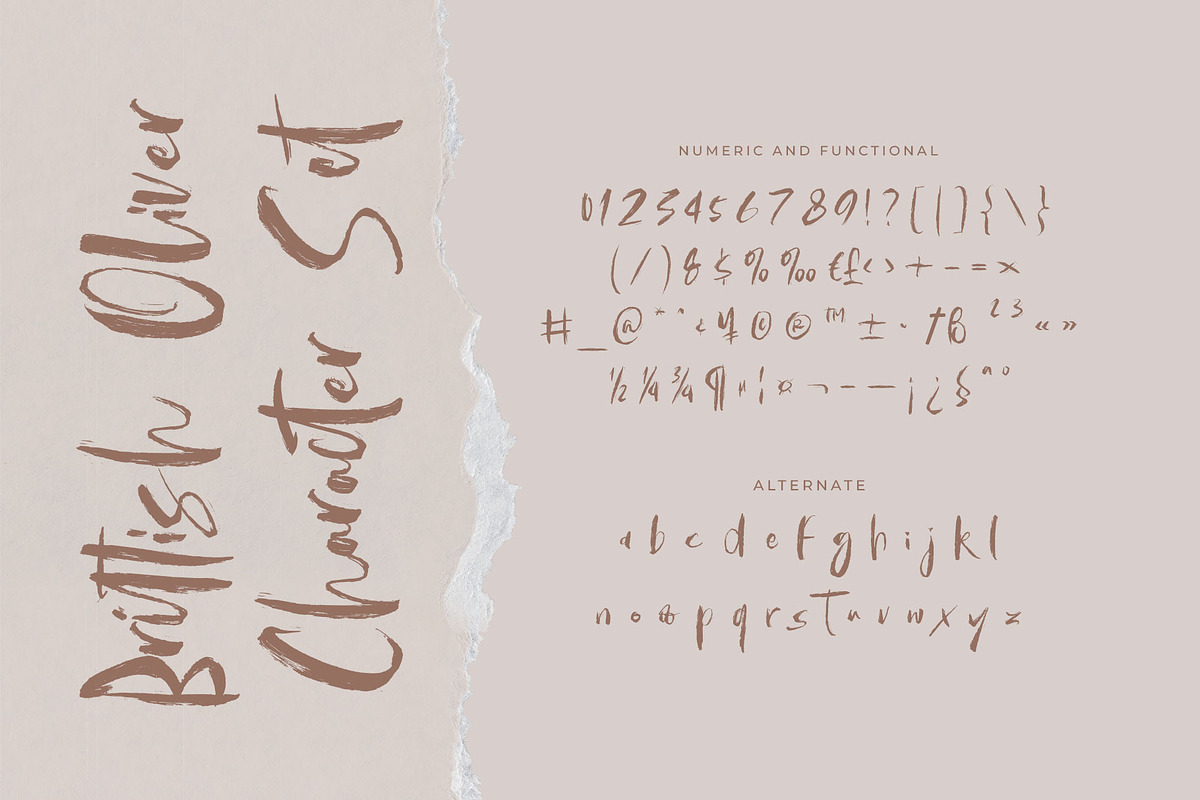 Brittish Oliver
Character Set
NUMERIC AND FUNCTIONAL
0123456789!?[|]{\}
(/)&$%‰€£‹›+-=×
#_@*^‹¥©®™±·†ß²³«»
½¼¾¶"¦¤¬–—¡¿§ªº
ALTERNATE
a b c d e f g h i j k l
n o p q r s t u v w x y z